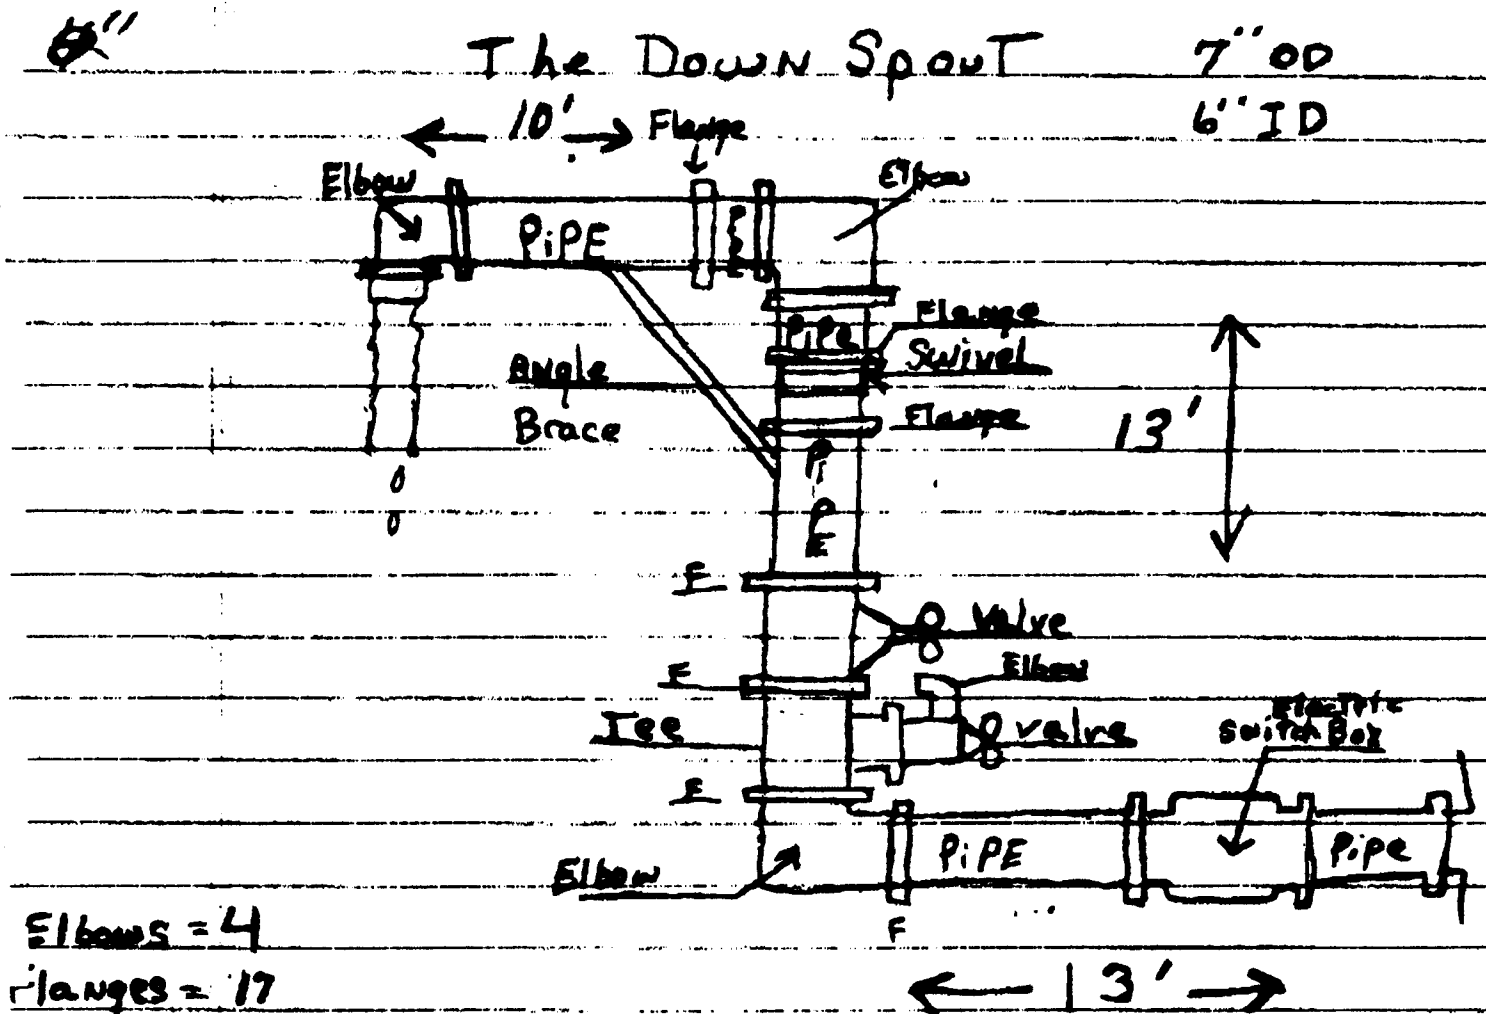 6"
The Down Spout
7" OD
6" ID
10'
Flange
Elbow
Elbow
PiPE
PiPE
PiPe
Flange
Swivel
Angle
Brace
Flange
13'
PiPE
F
Valve
F
Elbow
Tee
Valve
Electric
Switch Box
F
PiPE
Pipe
Elbow
F
Elbows = 4
Flanges = 17
13'